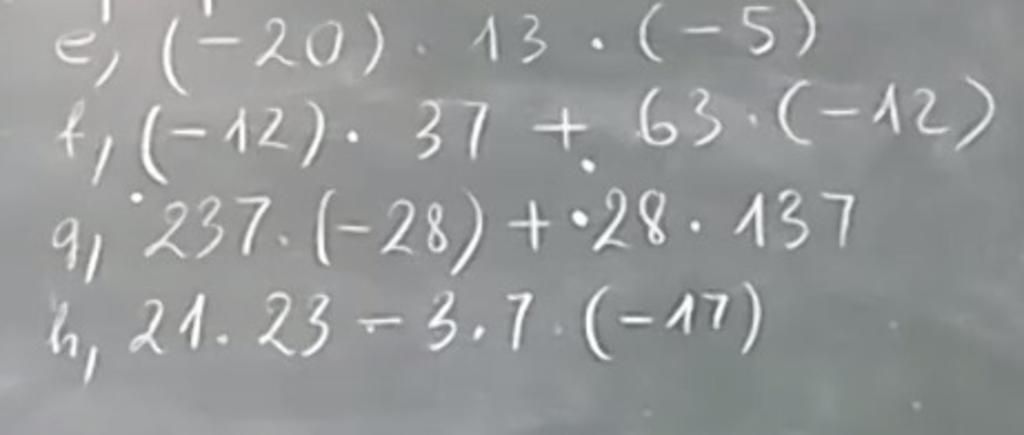 e, (-20) . 13 . (-5)
f, (-12) . 37 + 63 . (-12)
g, 237 . (-28) + 28 . 137
h, 21 . 23 - 3 . 7 . (-17)